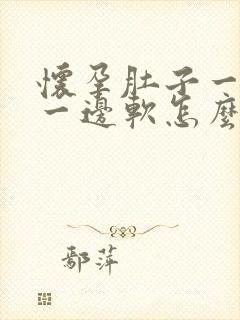 懷孕肚子一
一邊軟怎麼
鄢萍